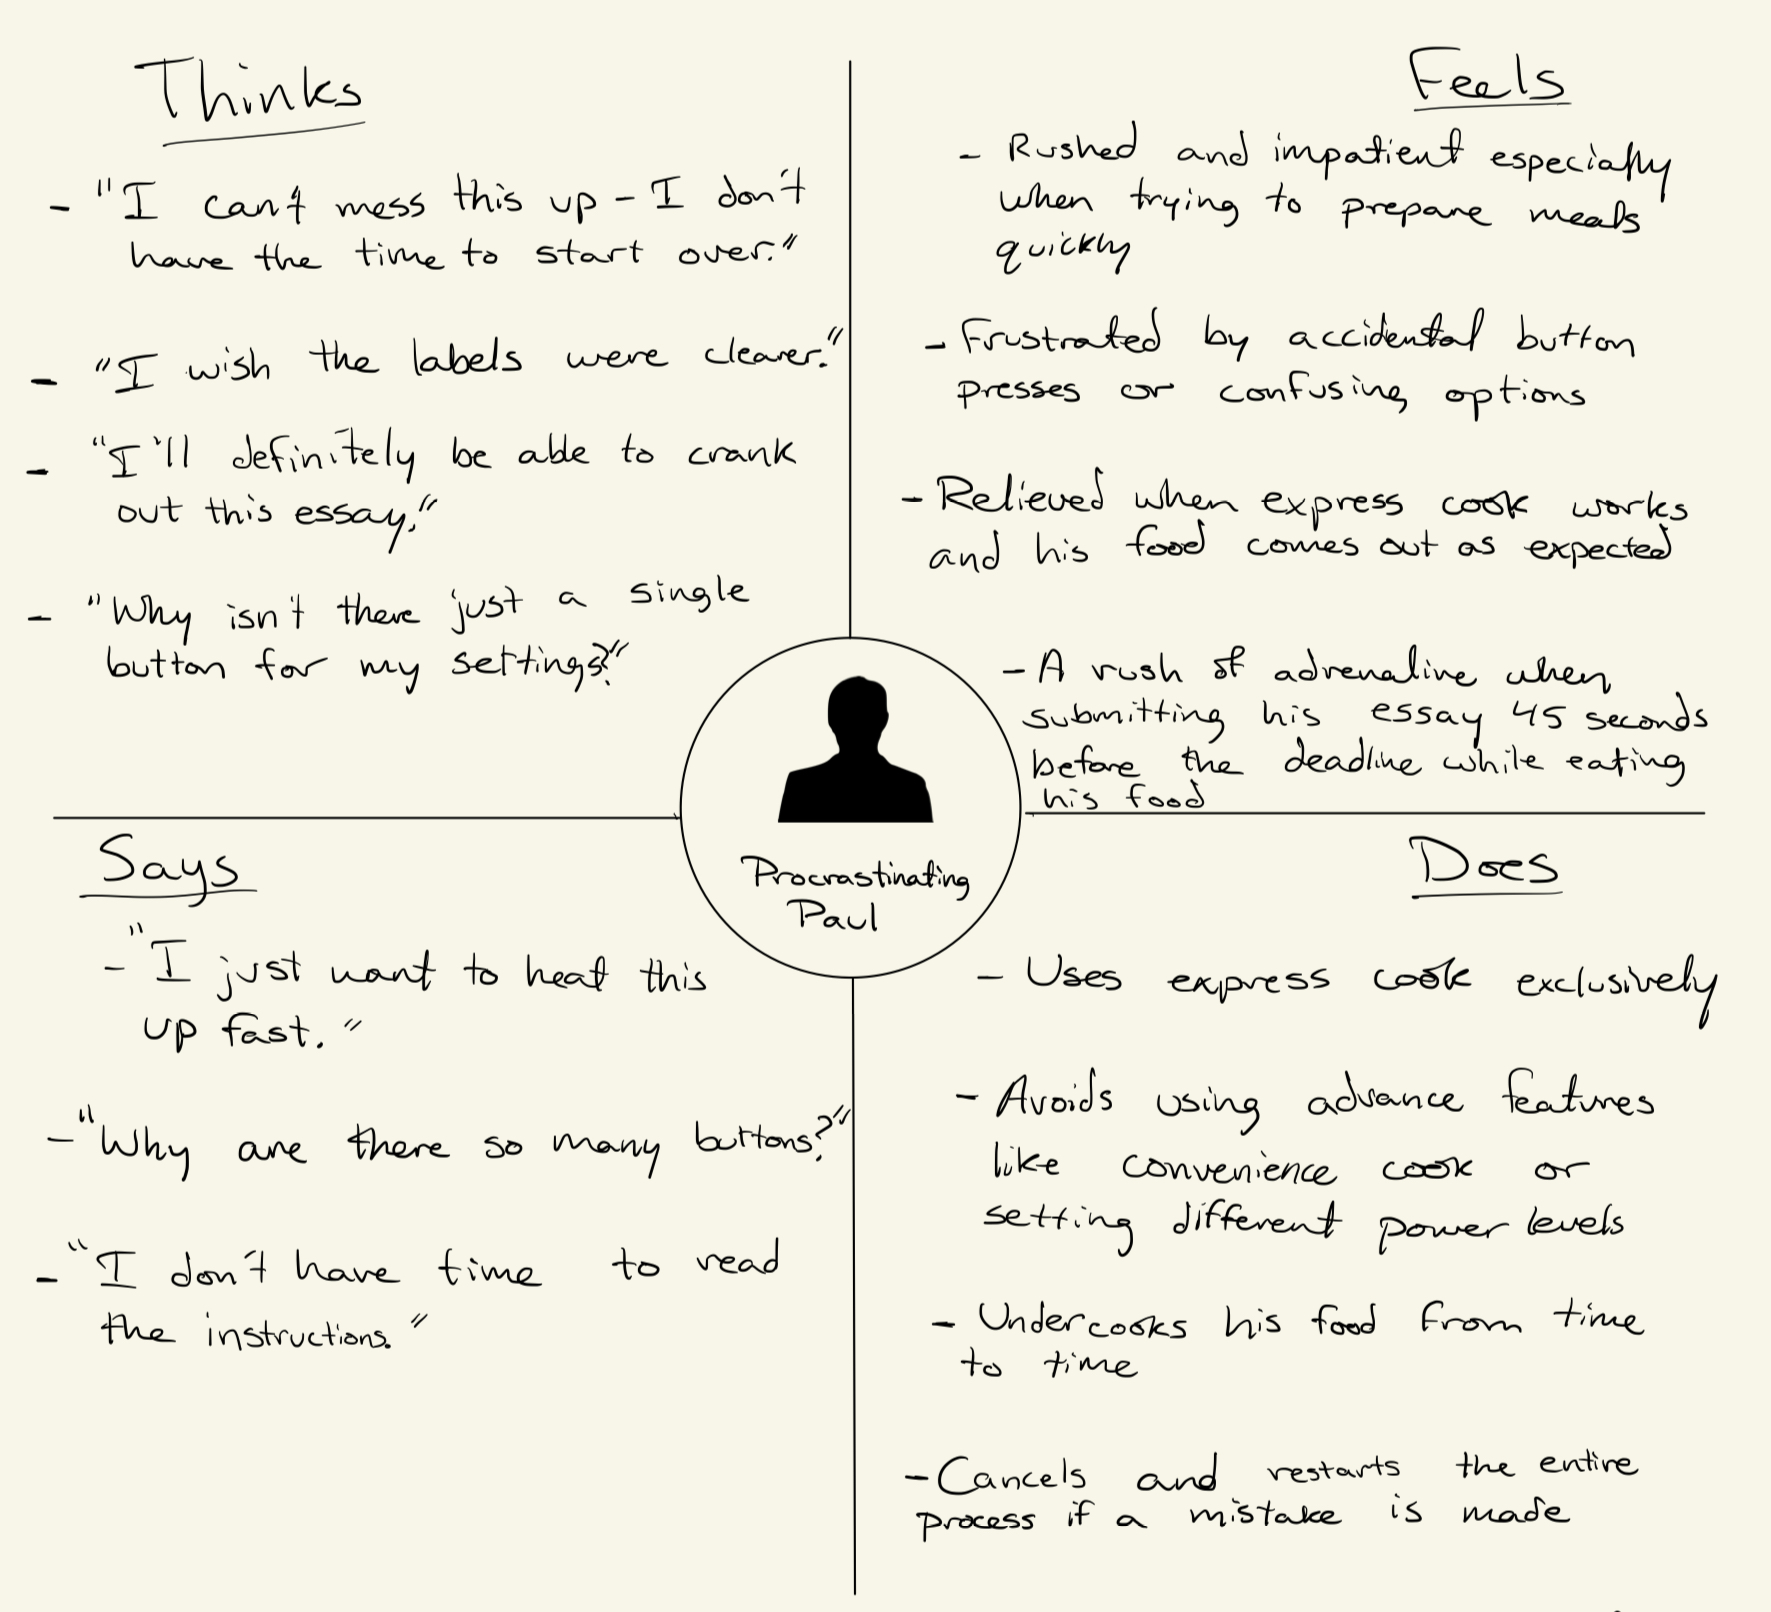 Thinks
- "I can't mess this up - I don't
have the time to start over."
- "I wish the labels were clearer."
- "I'll definitely be able to crank
out this essay."
- "Why isn't there just a single
button for my settings?"
Feels
- Rushed and impatient especially
when trying to prepare meals
quickly
- Frustrated by accidental button
presses or confusing options
- Relieved when express cook works
and his food comes out as expected
- A rush of adrenaline when
submitting his essay 45 seconds
before the deadline while eating
his food
Procrastinating
Paul
Says
- "I just want to heat this
up fast."
- "Why are there so many buttons?"
- "I don't have time to read
the instructions."
Does
- Uses express cook exclusively
- Avoids using advance features
like convenience cook or
setting different power levels
- Undercooks his food from time
to time
- Cancels and restarts the entire
process if a mistake is made